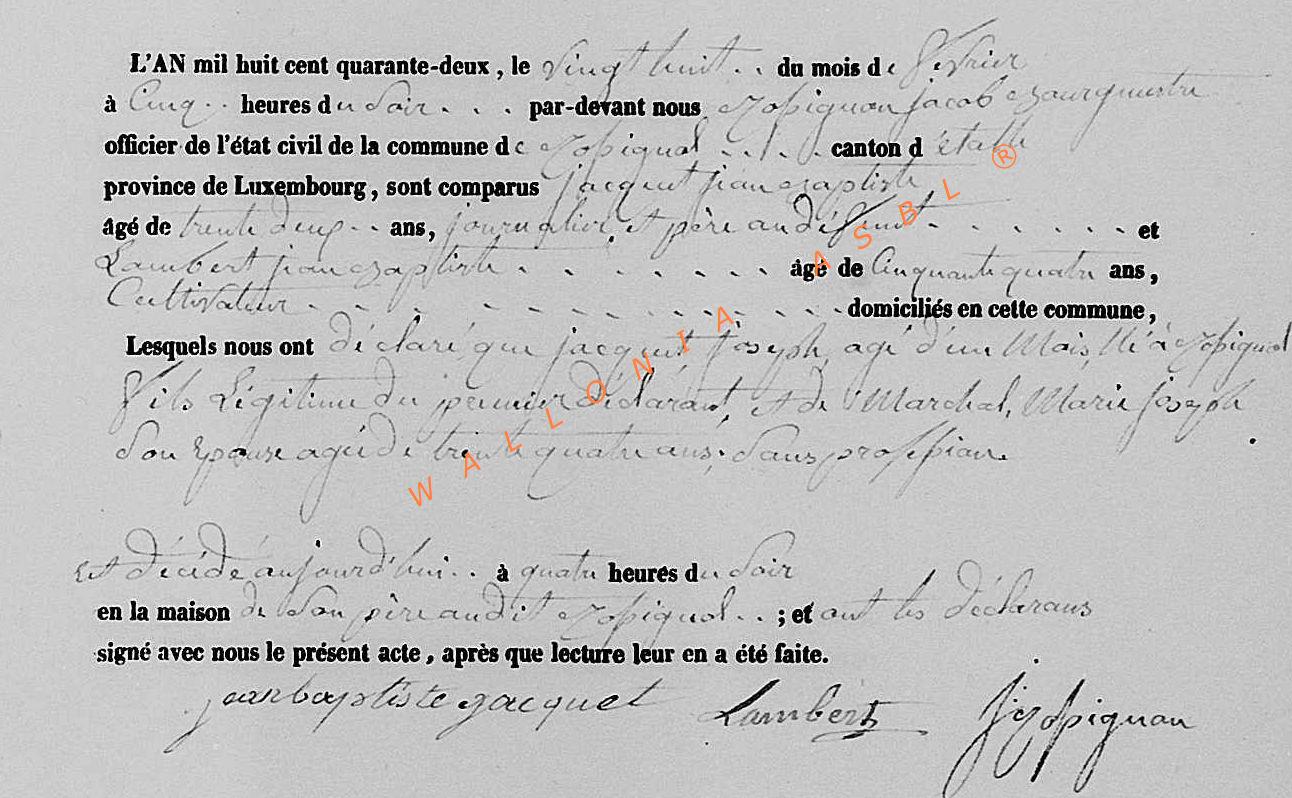 L'AN mil huit cent quarante-deux, le Vingt huit . . du mois de Fevrier
à Cinq . . heures du Soir . . . par-devant nous Rossignon jacob Bourgmestre
officier de l'état civil de la commune de Rossignol . . . . canton d'étalle
province de Luxembourg, sont comparus jacquet jean Baptiste
âgé de trente deux . . ans, journalier, et père au défunt . . . . . . . et
Lambert jean Baptiste . . . . . . . âgé de Cinquante quatre ans,
Cultivateur . . . . . . . . . . . . . domiciliés en cette commune,
Lesquels nous ont déclaré que jacquet joseph, agé d'un Mois Né à Rossignol
Fils Légitime du premier déclarant, et de Marchal, Marie joseph
Son Epouse agée de trente quatre ans, Sans profession.
Est décédé aujourd'hui . . à quatre heures du Soir
en la maison de Son père audit Rossignol . . ; et ont les déclarans
signé avec nous le présent acte, après que lecture leur en a été faite.
jean baptiste jacquet Lambert J Rossignon
WALLONIA ASBL ®